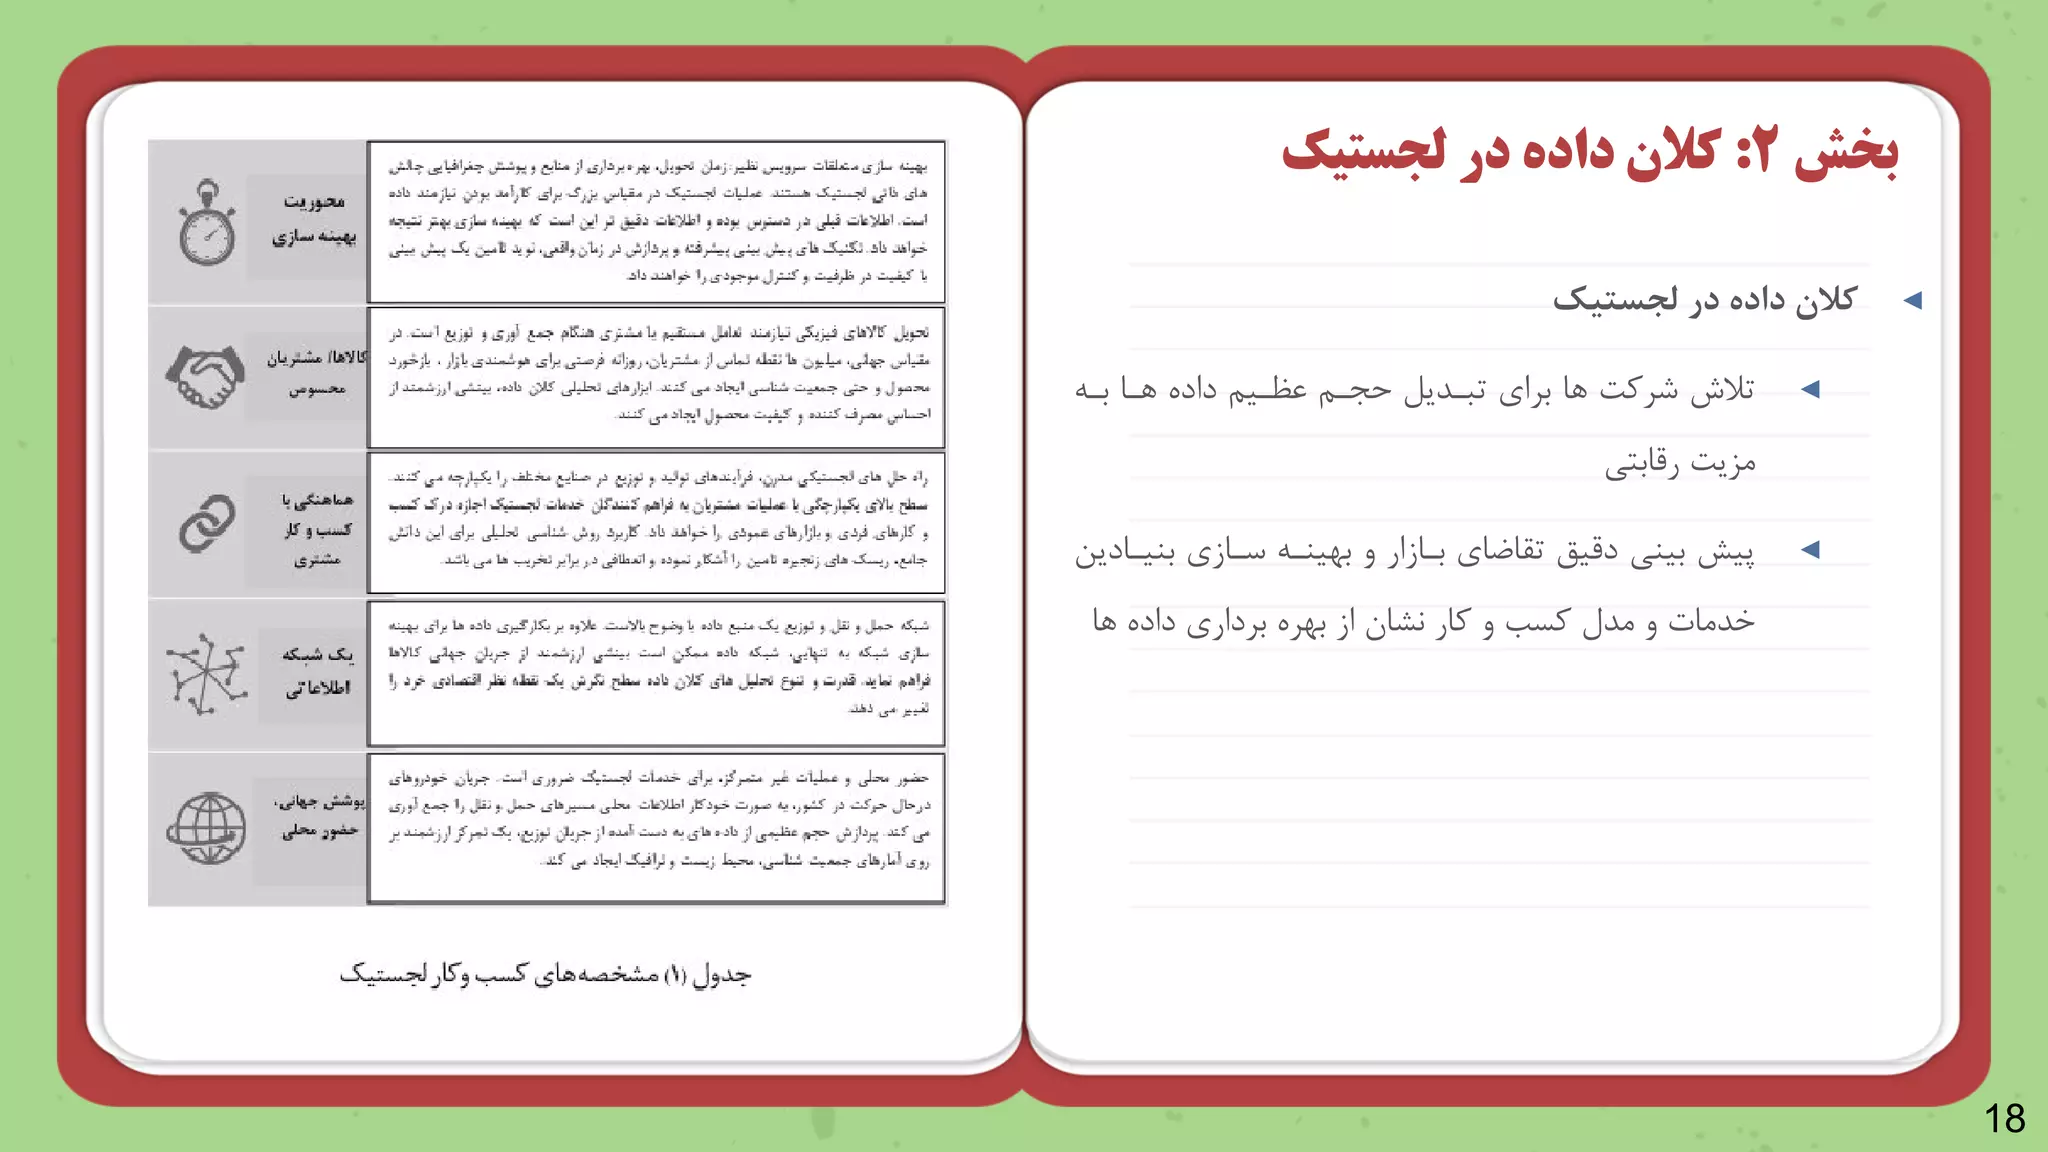 بخش ۲: کلان داده در لجستیک
کلان داده در لجستیک
تلاش شرکت ها برای تبدیل حجم عظیم داده ها به
مزیت رقابتی
پیش بینی دقیق تقاضای بازار و بهینه سازی بنیادین
خدمات و مدل کسب و کار نشان از بهره برداری داده ها
محوریت
بهینه سازی
بهینه سازی متعلقات سرویس نظیر: زمان تحویل، بهره برداری از منابع و پوشش جغرافیایی چالش
های ذاتی لجستیک هستند. عملیات لجستیک در مقیاس بزرگ برای کارآمد بودن نیازمند داده
است. اطلاعات قبلی در دسترس بوده و اطلاعات دقیق تر این است که بهینه سازی بهتر نتیجه
خواهد داد. تکنیک های پیش بینی پیشرفته و پردازش در زمان واقعی، نوید تامین یک پیش بینی
با کیفیت در ظرفیت و کنترل موجودی را خواهند داد.
کالاها/ مشتریان
محسوس
تحویل کالاهای فیزیکی نیازمند تعامل مستقیم با مشتری هنگام جمع آوری و توزیع است. در
مقیاس جهانی، میلیون ها نقطه تماس از مشتریان، روزانه فرصتی برای هوشمندی بازار ، بازخورد
محصول و حتی جمعیت شناسی ایجاد می کنند. ابزارهای تحلیلی کلان داده، بینشی ارزشمند از
احساس مصرف کننده و کیفیت محصول ایجاد می کنند.
هماهنگی با
کسب و کار
مشتری
راه حل های لجستیکی مدرن، فرآیندهای تولید و توزیع در صنایع مختلف را یکپارچه می کنند.
سطح بالای یکپارچگی با عملیات مشتریان به فراهم کنندگان خدمات لجستیک اجازه درک کسب
و کارهای فردی و بازارهای عمودی را خواهد داد. کاربرد روش شناسی تحلیلی برای این دانش
جامع، ریسک های زنجیره تامین را آشکار نموده و انعطافی در برابر تخریب ها می باشد.
یک شبکه
اطلاعاتی
شبکه حمل و نقل و توزیع یک منبع داده با وضوح بالاست. علاوه بر بکارگیری داده ها برای بهینه
سازی شبکه به تنهایی، شبکه داده ممکن است بینشی ارزشمند از جریان جهانی کالاها
فراهم نماید. قدرت و تنوع تحلیل های کلان داده سطح نگرش یک نقطه نظر اقتصادی خرد را
تغییر می دهد.
پوشش جهانی،
حضور محلی
حضور محلی و عملیات غیر متمرکز، برای خدمات لجستیک ضروری است. جریان خودروهای
درحال حرکت در کشور، به صورت خودکار اطلاعات محلی مسیرهای حمل و نقل را جمع آوری
می کند. پردازش حجم عظیمی از داده های به دست آمده از جریان توزیع، یک تمرکز ارزشمند بر
روی آمارهای جمعیت شناسی، محیط زیست و ترافیک ایجاد می کند.
جدول (۱) مشخصه‌های کسب وکار لجستیک
18